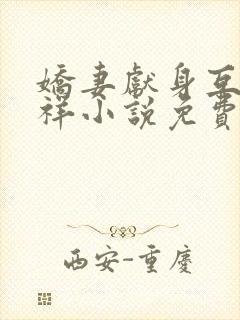 嬌妻獻身互
祥小說免費
西安-重慶